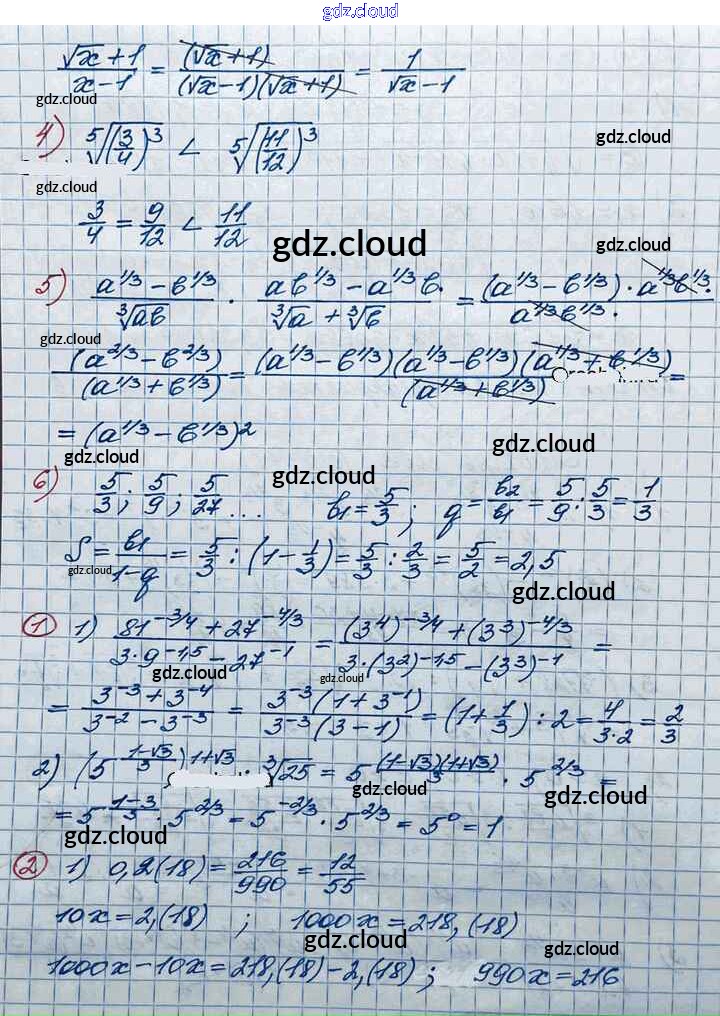 gdz.cloud
(√x+1)/(x-1) = (√x+1)/((√x-1)(√x+1)) = 1/(√x-1)
gdz.cloud
4) ⁵√((3/4)³) < ⁵√((11/12)³)
gdz.cloud
gdz.cloud
3/4 = 9/12 < 11/12
gdz.cloud
gdz.cloud
5) (a^1/3 - b^1/3)/∛(ab) · (ab^1/3 - a^1/3 b)/(∛a + ∛b) = ((a^1/3 - b^1/3) · a^1/3 b^1/3 ·)/(a^1/3 b^1/3 ·)
gdz.cloud
gdz.cloud
(a^2/3 - b^2/3)/(a^1/3 + b^1/3) = ((a^1/3 - b^1/3)(a^1/3 - b^1/3)(a^1/3 + b^1/3))/(a^1/3 + b^1/3) =
= (a^1/3 - b^1/3)²
gdz.cloud
gdz.cloud
6) 5/3; 5/9; 5/27 ... b1 = 5/3; q = b2/b1 = 5/9 : 5/3 = 1/3
gdz.cloud
gdz.cloud
S = b1/(1-q) = 5/3 : (1 - 1/3) = 5/3 : 2/3 = 5/2 = 2,5
gdz.cloud
gdz.cloud
① 1) (81^-3/4 + 27^-4/3)/(3·9^-1,5 - 27^-1) = ((3^4)^-3/4 + (3^3)^-4/3)/(3·(3^2)^-1,5 - (3^3)^-1) =
gdz.cloud
gdz.cloud
= (3^-3 + 3^-4)/(3^-2 - 3^-3) = (3^-3(1 + 3^-1))/(3^-3(3-1)) = (1 + 1/3) : 2 = 4/(3·2) = 2/3
2) (5^((1-√3)/3))^(1+√3) ∛25 = 5^((1-√3)(1+√3)/3) · 5^2/3 =
gdz.cloud
gdz.cloud
= 5^((1-3)/3) · 5^2/3 = 5^-2/3 · 5^2/3 = 5^0 = 1
gdz.cloud
② 1) 0,2(18) = 216/990 = 12/55
10x = 2,(18) ; 1000x = 218,(18)
gdz.cloud
gdz.cloud
1000x - 10x = 218,(18) - 2,(18) ; 990x = 216